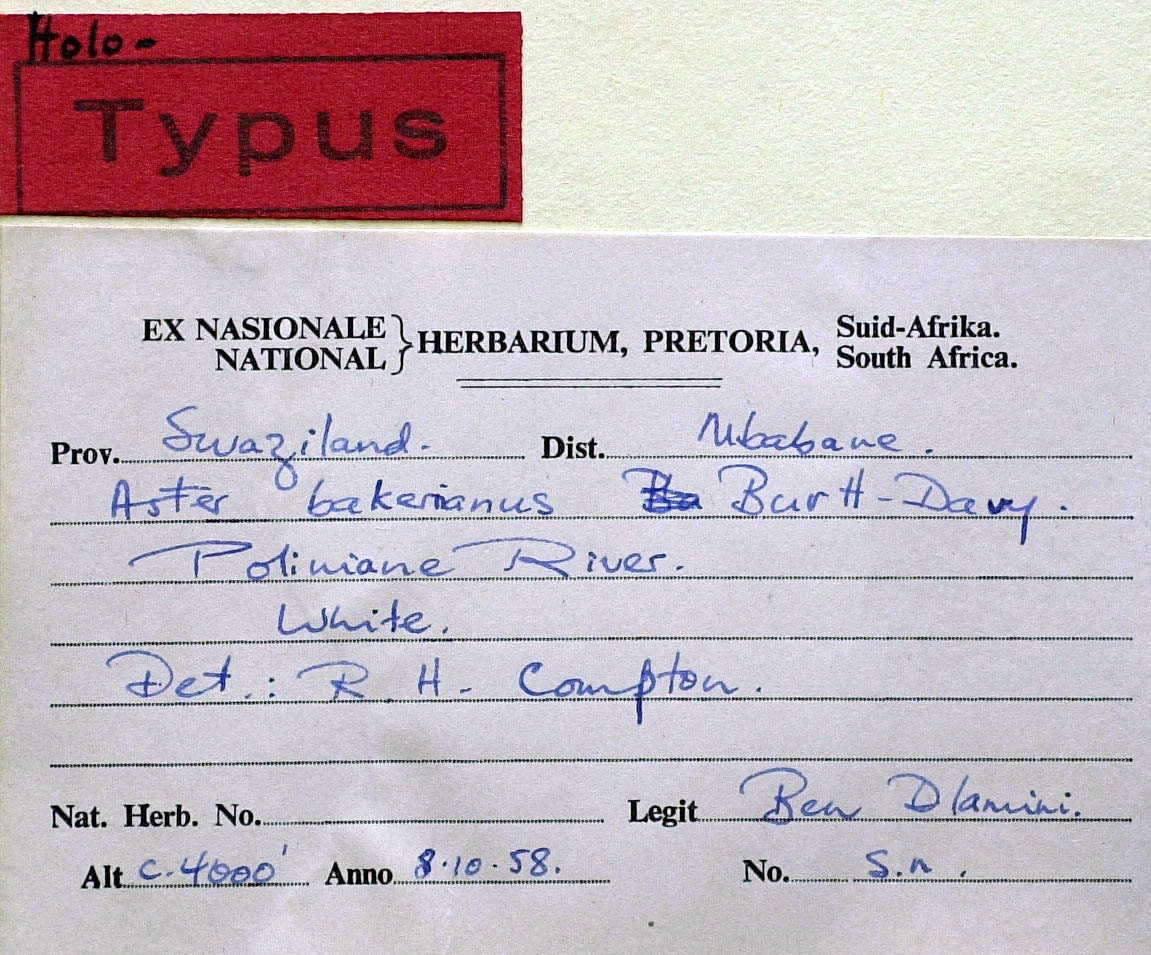 Holo-
Typus
EX NASIONALE } HERBARIUM, PRETORIA, Suid-Afrika.
NATIONAL South Africa.
Prov. Swaziland. Dist. Mbabane.
Aster bakerianus Burtt-Davy.
Poliniane River.
White.
Det.: R H. Compton.
Nat. Herb. No. Legit Ben Dlamini.
Alt c. 4000' Anno 8.10.58. No. S.n.